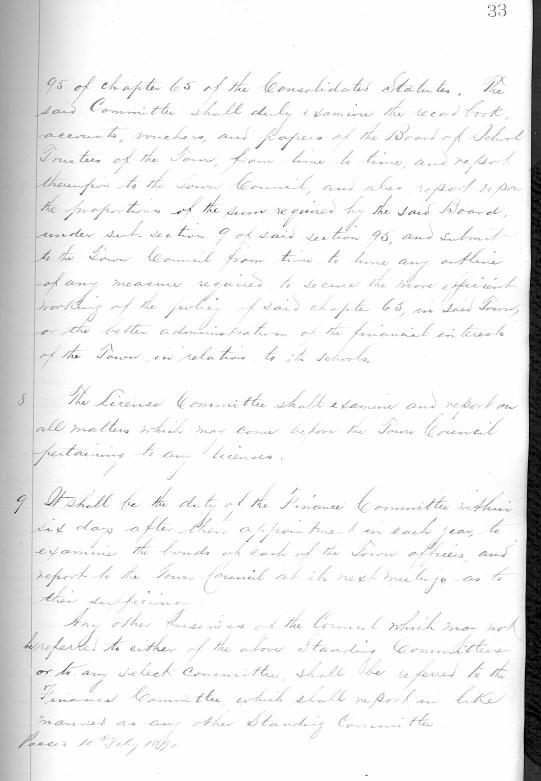 33
95 of chapter 65 of the Consolidated Statutes. The
said Committee shall duly examine the record book,
accounts, vouchers, and papers of the Board of School
Trustees of the Town, from time to time, and report
thereupon to the Town Council, and also report upon
the proportions of the sum required by the said Board,
under sub-section 9 of said section 95, and submit
to the Town Council from time to time any outline
of any measure required to secure the more efficient
working of the policy of said chapter 65, in said Town,
or the better administration of the financial interests
of the Town in relation to its schools.
8 The License Committee shall examine and report on
all matters which may come before the Town Council
pertaining to any licenses.
9 It shall be the duty of the Finance Committee within
six days after their appointment in each year, to
examine the bonds of each of the Town officers, and
report to the Town Council at its next meeting as to
their sufficiency
Any other business of the Council which may not
be referred to either of the above Standing Committees
or to any select committee, shall be referred to the
Finance Committee, which shall report in like
manner as any other Standing Committee
Passed 10th July 1890